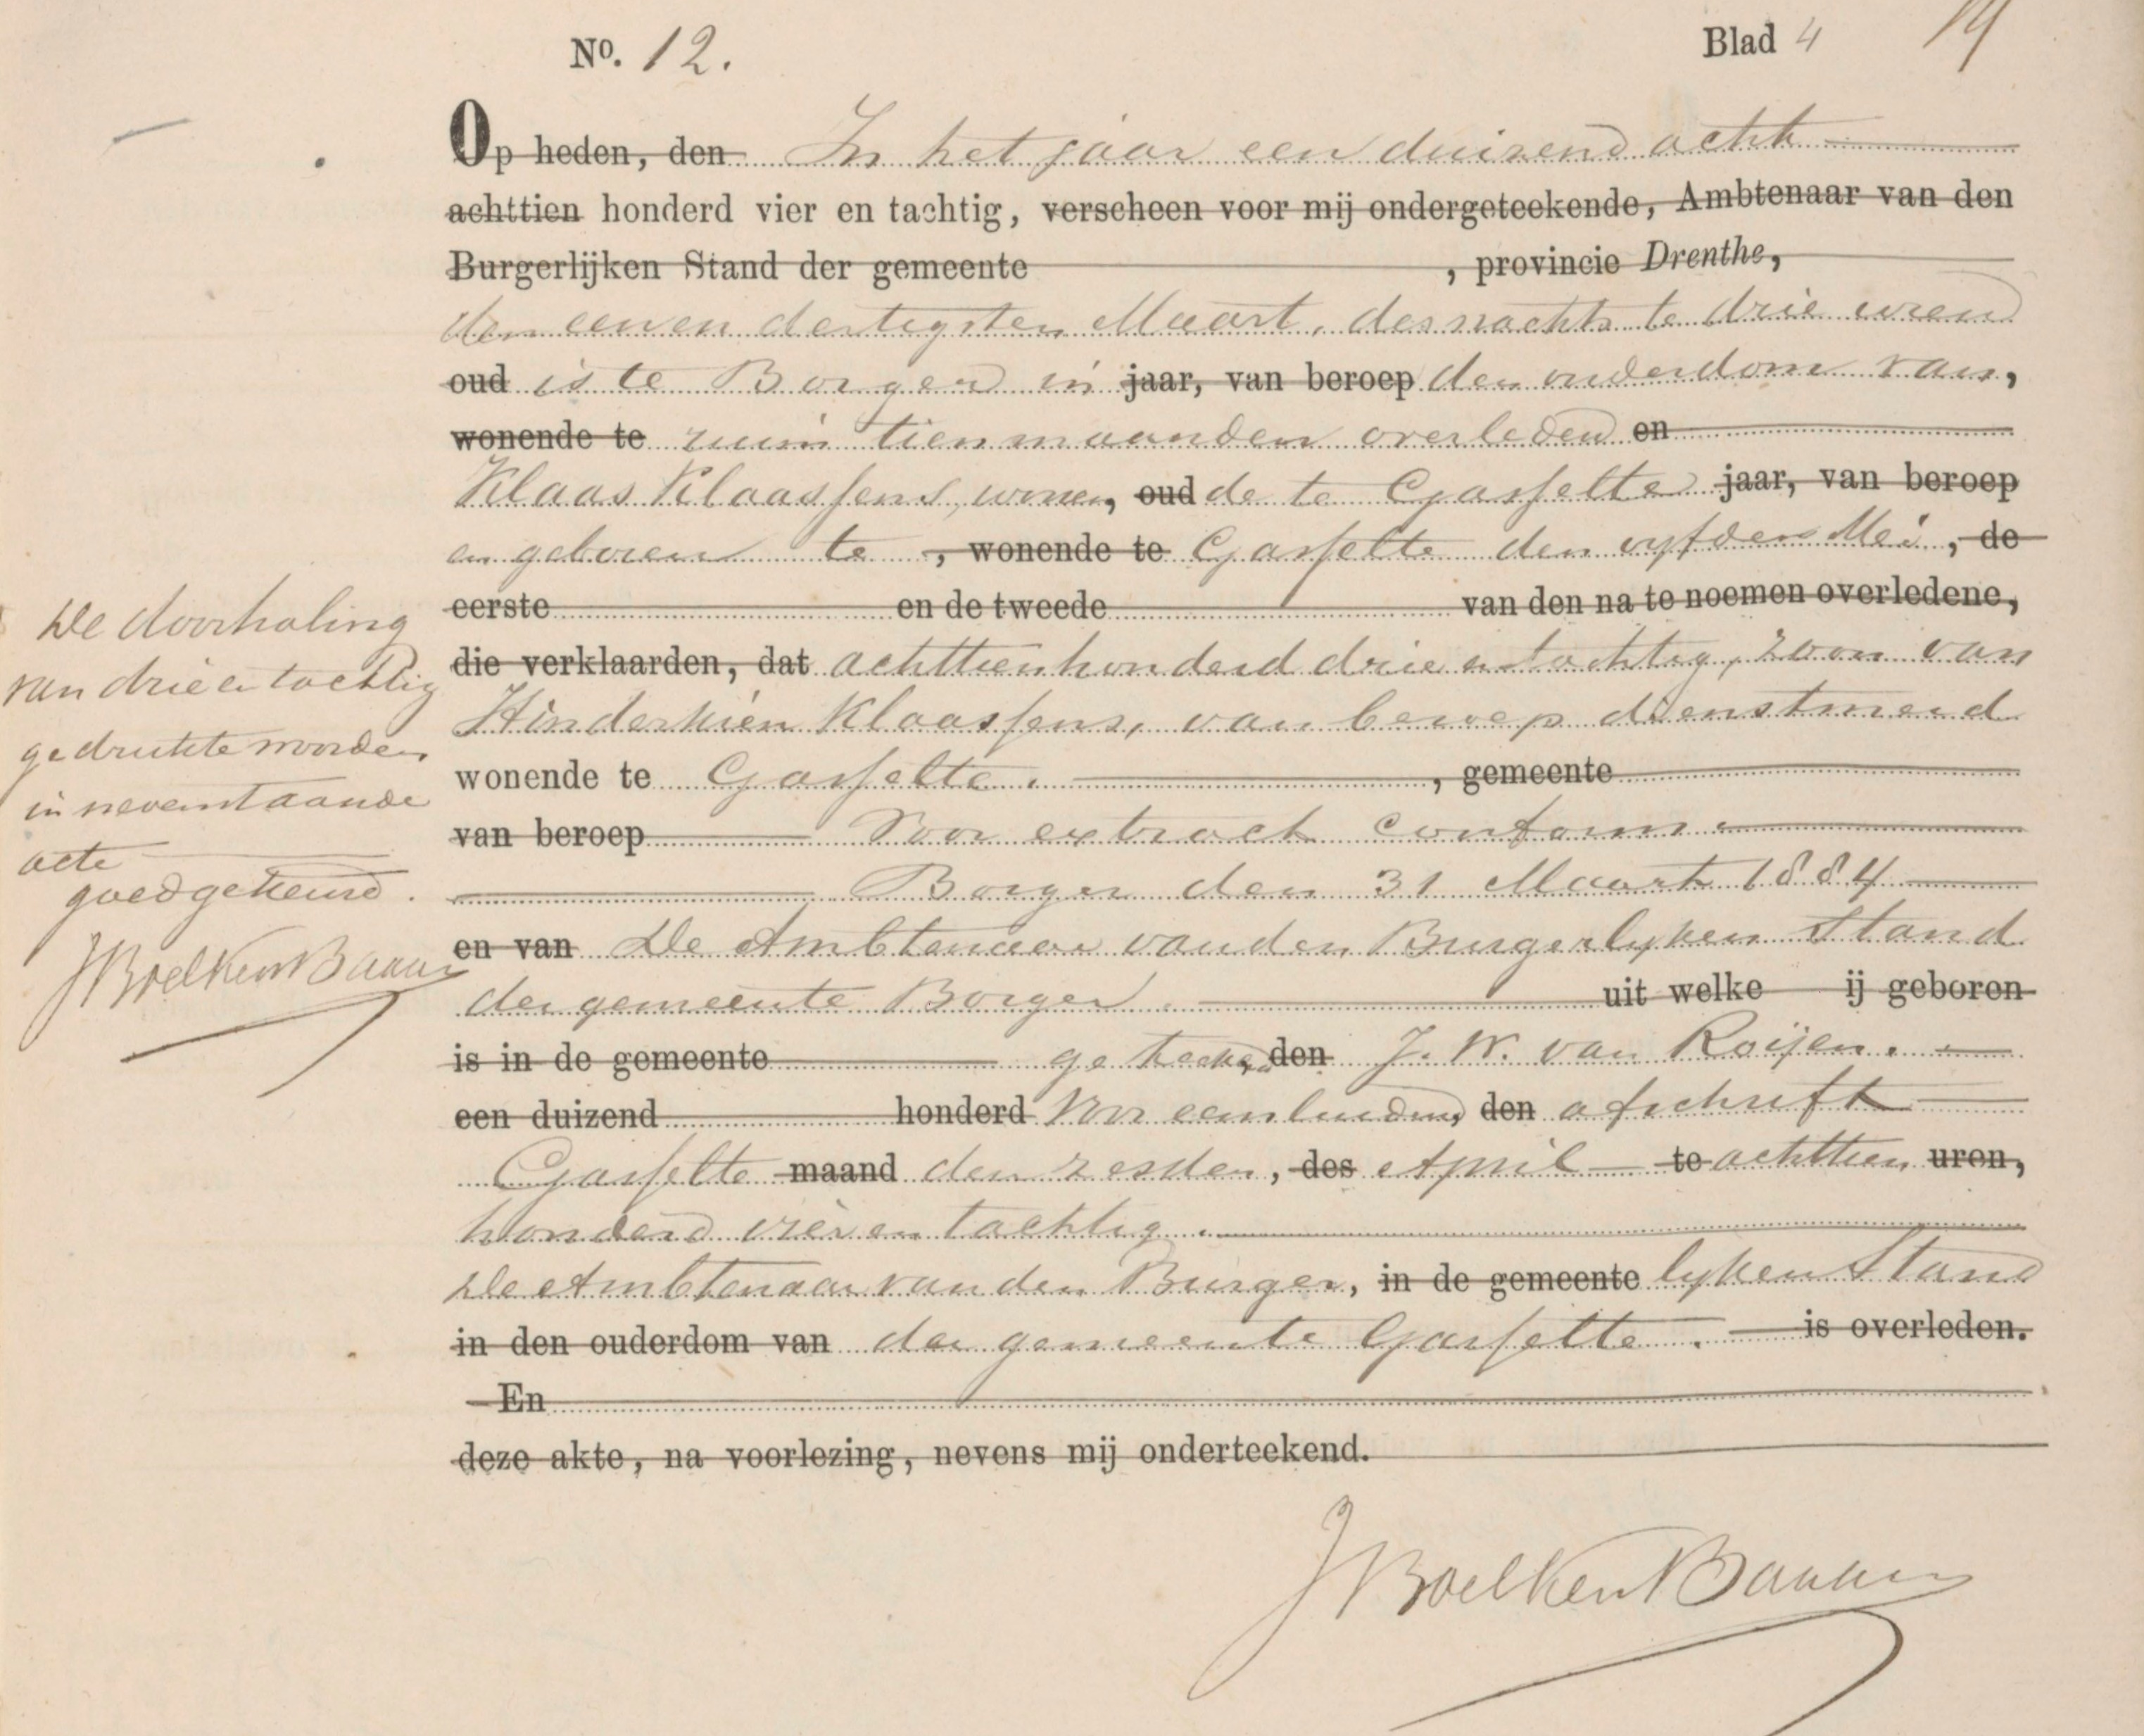 No. 12.
Blad 4 19
Op heden, den In het jaar een duizend acht
achttien honderd vier en tachtig, verscheen voor mij ondergeteekende, Ambtenaar van den
Burgerlijken Stand der gemeente , provincie Drenthe,
den eenen dertigsten Maart, des nachts te drie uren
oud is te Borger in jaar, van beroep den ouderdom van,
wonende te ruim tien maanden overleden en
Klaas Klaassens, wonen, oud de te Gasselte jaar, van beroep
en geboren te , wonende te Gasselte den vyfden Mei, de
eerste en de tweede van den na te noemen overledene,
die verklaarden, dat achttienhonderd drie en tachtig, zoon van
Hinderkien Klaassens, van beroep dienstmeid
wonende te Gasselte. , gemeente
van beroep Voor extract conform.
Borger den 31 Maart 1884
en van De Ambtenaar van den Burgerlyken Stand
der gemeente Borger. uit welke ij geboren
is in de gemeente geteekend, den J. W. van Roijen.
een duizend honderd Voor eensluidend, den afschrift
Gasselte maand den zesden, des April te achttien uren,
honderd vier en tachtig.
De Ambtenaar van den Burger, in de gemeente lyken Stand
in den ouderdom van der gemeente Gasselte. is overleden.
En
deze akte, na voorlezing, nevens mij onderteekend.
De doorhaling
van drie en tachtig
gedrukte woorden
in nevenstaande
acte
goedgekeurd.